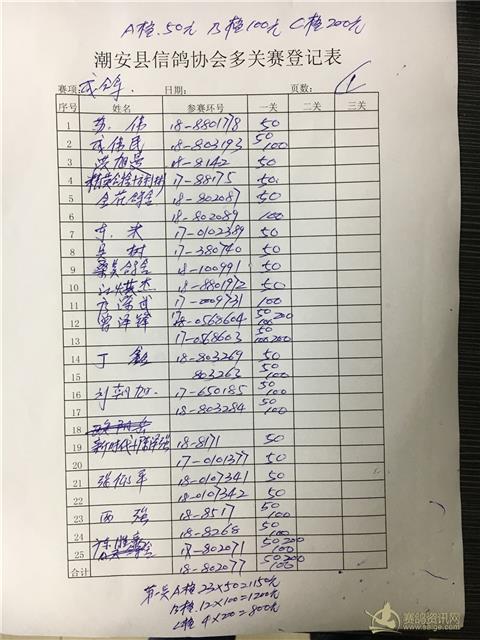 A档.50元 B档100元 C档200元
潮安县信鸽协会多关赛登记表
赛项: 成鸽. 日期: 页数: 1
序号 姓名 参赛环号 一关 二关 三关
1 苏.伟 18-8801778 50
2 成伟民 18-803193 50 100
3 18-8142 50
4 17-88175 50
5 18-802087 50
6 18-802089 100
7 东.米 17-0102389 50
8 吴树 17-380740 50
9 桑吴鸽舍 18-100991 50
10 江娘杰 18-8801912 50
11 17-0009731 100
12 曾泽锋 18-0568604 50 200 100
13 17-0568603 50 100 200
14 丁 18-803269 50
15 803263 50 100
16 刘朝加 17-650185 50
17 18-803284 50 100
18
19 新时代+陈泽强 18-8171 50
20 17-0101377 50
21 张仰军 18-0107341 50
22 18-0107342 50
23 西强 18-8517 50 100
24 18-8268 50 100
25 17-802071 50 200 100
合计 18-802077 50 200 100
第一关A档23×50=1150元
B档12×100=1200元
C档4×200=800元
赛鸽资讯网
www.saige.com